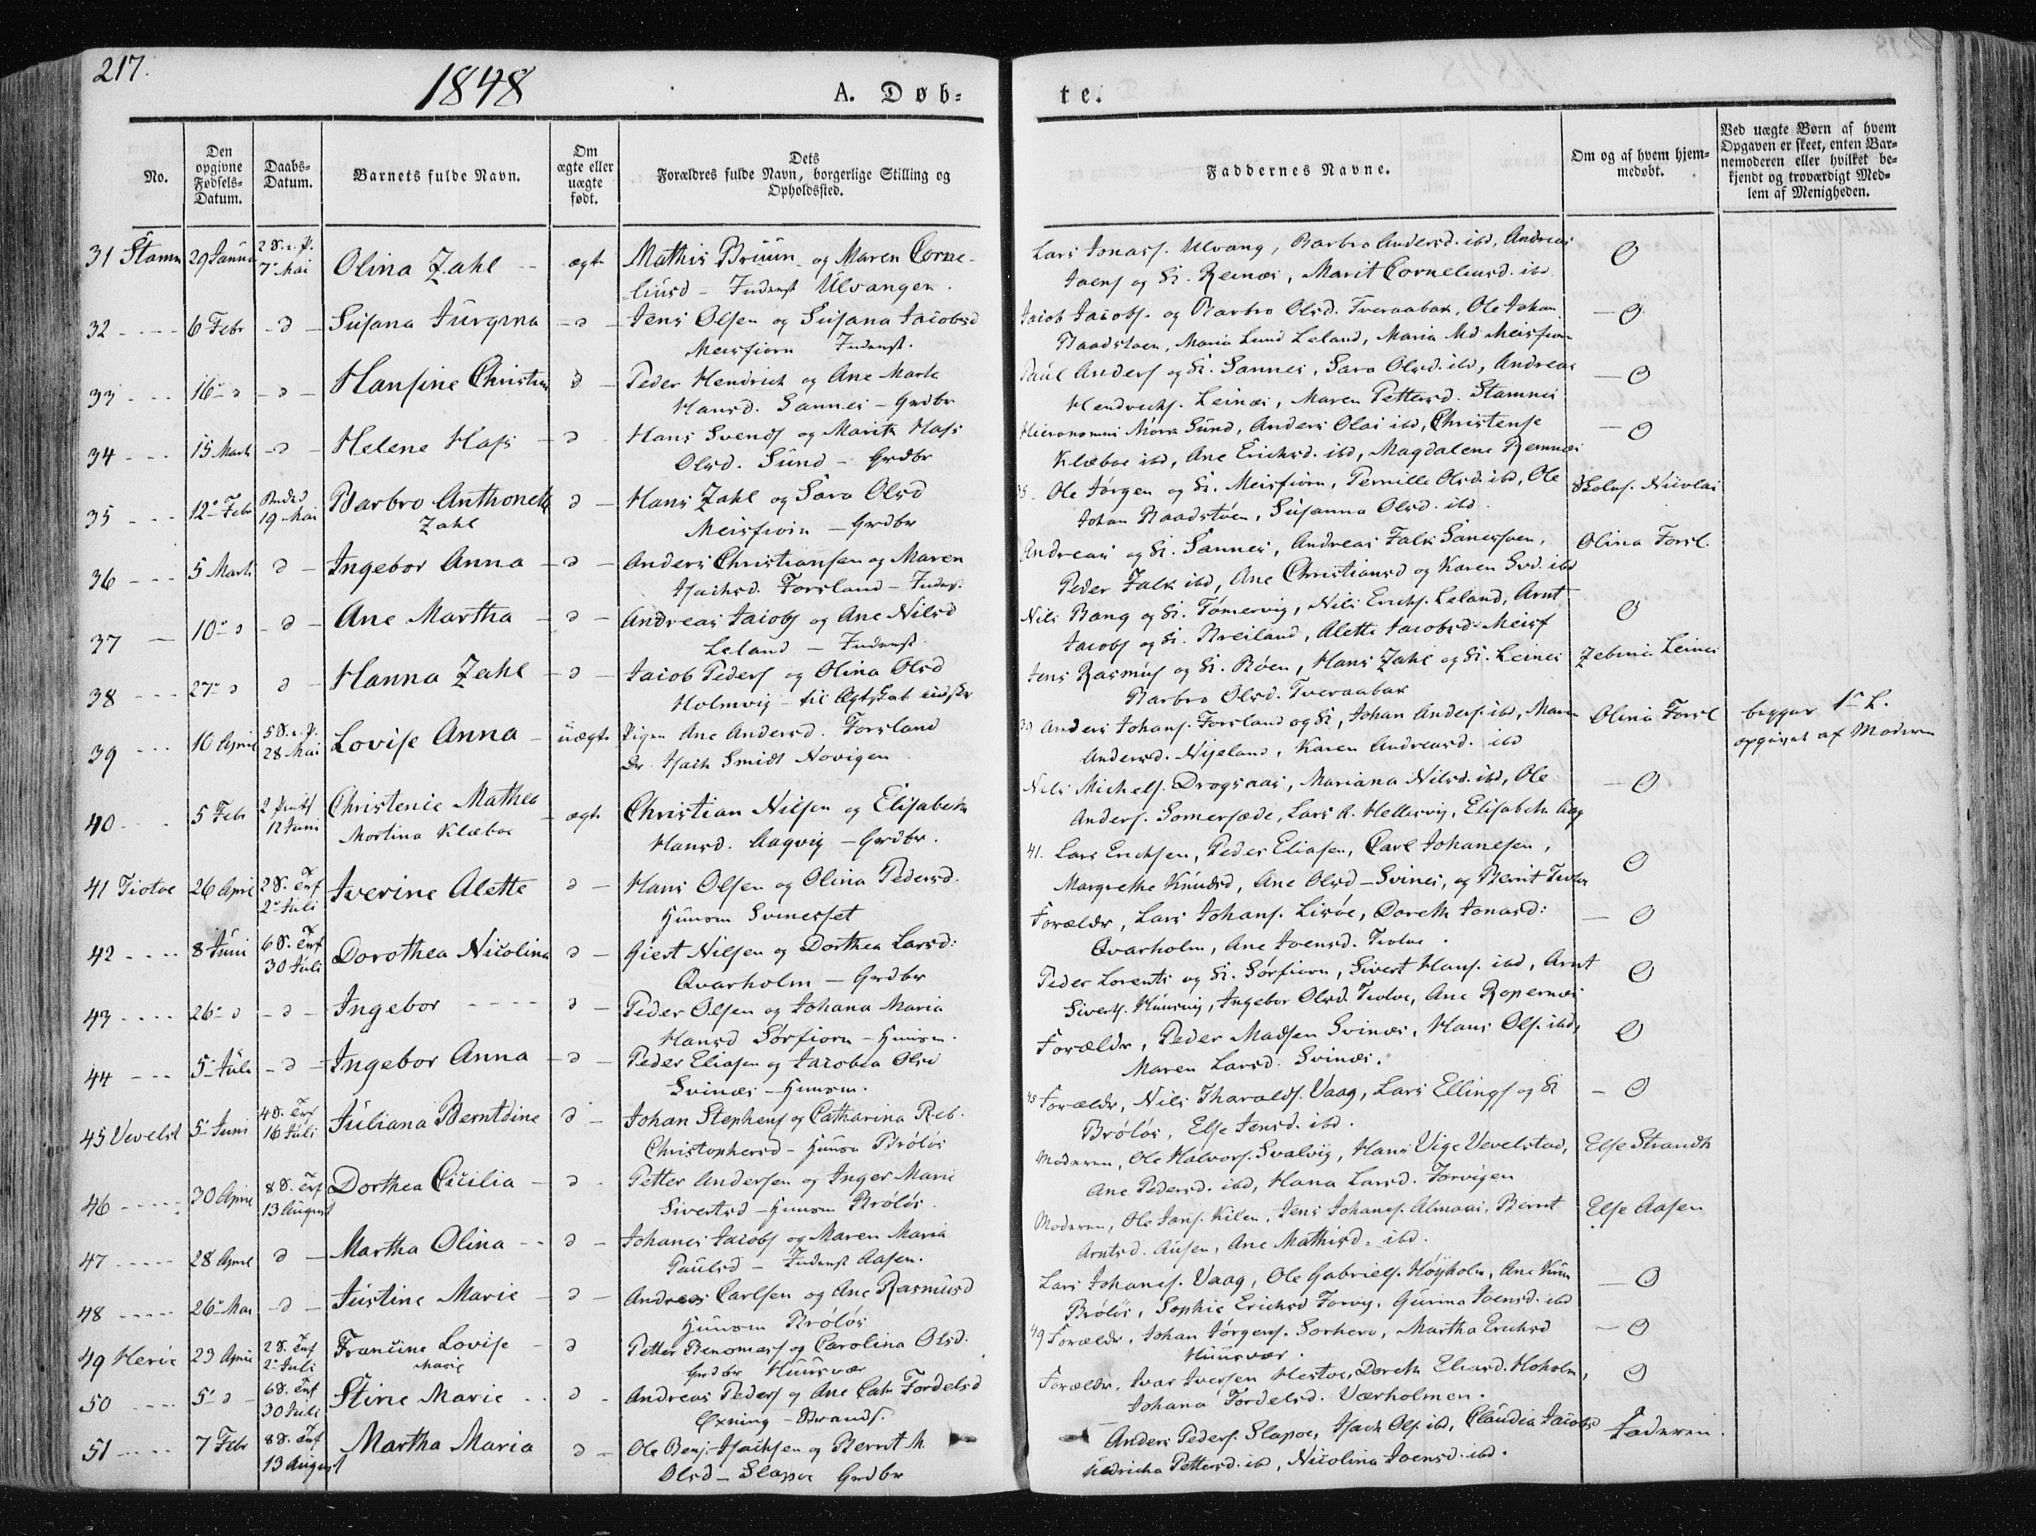 217.
1848
A. Døb-
te.
No.
Den opgivne Fødsels-Datum.
Daabs-Datum.
Barnets fulde Navn.
Om ægte eller uægte født.
Dets Forældres fulde Navn, borgerlige Stilling og Opholdssted.
Faddernes Navne.
Om og af hvem hjem-medøbt.
Ved uægte Børn af hvem Opgaven er skeet, enten Bar-nemoderen eller hvilket be-kjendt og troværdigt Med-lem af Menigheden.
31 Stamn 29 Janu 7 Mai Olina Zahl ægt Mathis Bruun og Maren Corne-
liusd - Inderst Ulvangen.
Lars Jonass. Ulvang, Barbro Andersd. ibd, Andreas
Joens og K. Reinæs, Marit Corneliusd. ibd O
32 6 Febr d Susana Jurgina d Jens Olsen og Susana Jacobsd
Meisfiorn Inderst.
Jacob Jacobs. og Barbro Olsd. Tveraabak, Ole Johan
Baadstoen, Maria Lund Leland, Maria Md Meisfiorn O
33 16 d d Hansine Christine d Peder Hendrich og Ane Marta
Hansd. Sannes - Grdbr
Paul Anders og K. Sannes, Sara Olsd. ibd, Andreas
Hendrichs. Leines, Maren Pettersd. Stamnes O
34 15 Marts d Helene Hass d Hans Svends og Marith Hass
Olsd. Sund - Grdbr
Hieronomus Mora Sund, Anders Olai ibd, Christense
Klæboe ibd, Ane Erichsd. ibd, Magdalene Remnæs O
35 12 Febr 19 Mai Barbro Anthonette
Zahl d Hans Zahl og Sara Olsd
Meisfiorn - Grdbr
Ole Jørgen og K. Meisfiorn, Pernille Olsd. ibd, Ole
Johan Baadstøen, Susanna Olsd. ibd. Nicolai
36 5 Marts d Ingebor Anna d Anders Christiansen og Maren
Isachsd. Forsland - Inderst.
Andreas og K. Sannes, Andreas Falk Sannesøen,
Peder Falk ibd, Ane Christiansd og Karen Svd. ibd Olina Forsl.
37 10 d d Ane Martha d Andreas Jacobs og Ane Nilsd
Leland - Inderst.
Nils Bang og K. Tømervig, Nils Erichs. Leland, Arnt
Jacobs og K. Breiland, Alette Jacobsd. Meisf O
38 27 d d Hanna Zahl d Jacob Peders og Olina Olsd
Holmvig - til Ægteskab
Jens Rasmus og K. Røen, Hans Zahl og K. Leines
Barbro Olsd. Tveraabak Zebina Leines
39 10 April 28 Mai Lovise Anna uægt Pigen Ane Andersd. Forsland
Isach Smidt Novigen
Anders Johans. Forsland og K, Johan Anders. ibd, Maren
Andersd. Nipeland, Karen Andreasd. ibd Olina Forsl begges 1st L.
opgivet af Moderen
40 5 Febr 12 Juni Christenie Mathea
Mortina Klæboe ægt Christian Nilsen og Elisabeth
Hansd. Aagvig - Grdbr.
Nils Michels. Dragsaas, Mariana Nilsd. ibd, Ole
Anders. Somersæde, Lars A. Hellesvig, Elisabeth Aag O
41 Tiotoe 26 April 2 Juli Iverine Alette d Hans Olsen og Olina Pedersd.
Huusm Svinesset
41. Lars Erichsen, Peder Eliasen, Carl Johanesen,
Margrethe Knudsd, Ane Olsd - Svines, og Berrit Tiotoe O
42 8 Juni 6 S. Trf 30 Juli Dorothea Nicolina d Giert Nilsen og Dorthea Larsd:
Qvarholm - Grdbr
Forældr, Lars Johans. Lisøe, Doreth Jonasd:
Qvarholm, Ane Joensd. Tiotoe. O
43 26 d d Ingebor d Peder Olsen og Johana Maria
Hansd Sørfiorn - Huusm.
Peder Lorents og K. Sørfiorn, Sivert Hans. ibd, Arnt
Siverts. Huusvig, Ingebor Olsd. Tiotoe, Ane Ropernæs O
44 5 Juli d Ingebor Anna d Peder Eliasen og Jacobea Olsd
Svinæs - Huusm.
Forældr, Peder Madsen Svinæs, Hans Ols. ibd,
Maren Larsd. Svinæs. O
45 Vevelst 5 Juni 4 S. Trf 16 Juli Juliana Berntdine d Johan Stephens og Catharina Reb.
Christophersd - Huusm Brøløs
Forældr, Nils Tharalds. Vaag, Lars Ellings og K
Brøløs, Else Jensd. ibd. O
46 30 April 8 S. Trf 13 August Dorthea Cicilia d Petter Andersen og Inger Marie
Sivertsd - Huusm Brøløs.
Moderen, Ole Halvors. Svalvig, Hans Vige Vevelstad,
Ane Pedersd. ibd, Hana Larsd. Forvigen Else Strandt
47 28 April d Martha Olina d Johanes Jacobs og Maren Maria
Paulsd - Inderst Aasen.
Moderen, Ole Jans. Kilen, Jens Johanes. Almaas, Bernt
Arntsd. Ausen, Ane Mathisd. ibd. Else Aasen
48 26 Mai d Justine Marie d Andreas Carlsen og Ane Rasmusd
Huusm Brøløs
Lars Johanes. Vaag, Ole Gabriels. Høyholm, Ane Knu
Brøløs, Sophie Erichsd Forvig, Gurina Joensd. ibd O
49 Herøe 23 April 2 S. Trf 2 Juli Francine Lovise
Marie d Petter Benomass og Carolina Olsd.
Grdbr Huusvær
49 Forældr, Johan Jørgens. Sorhero, Martha Erichsd
Huusvær. O
50 5 d 6 S. Trf 30 Juli Stine Marie d Andreas Peders og Ane Cath Fordelsd
Øxning - Strands.
Forældr, Ivar Iversen Hestoe, Doreth Eliasd. Hoholm,
Johana Fordelsd. Værholmen. O
51 7 Febr 8 S. Trf 13 August Martha Maria d Ole Benj. Isachsen og Berrit M.
Olsd - Slapoe Grdbr
Anders Peders. Slapoe, Isach Ols. ibd, Claudia Jacobs
Pettersd. ibd, Nicolina Joensd. ibd. Faderen.